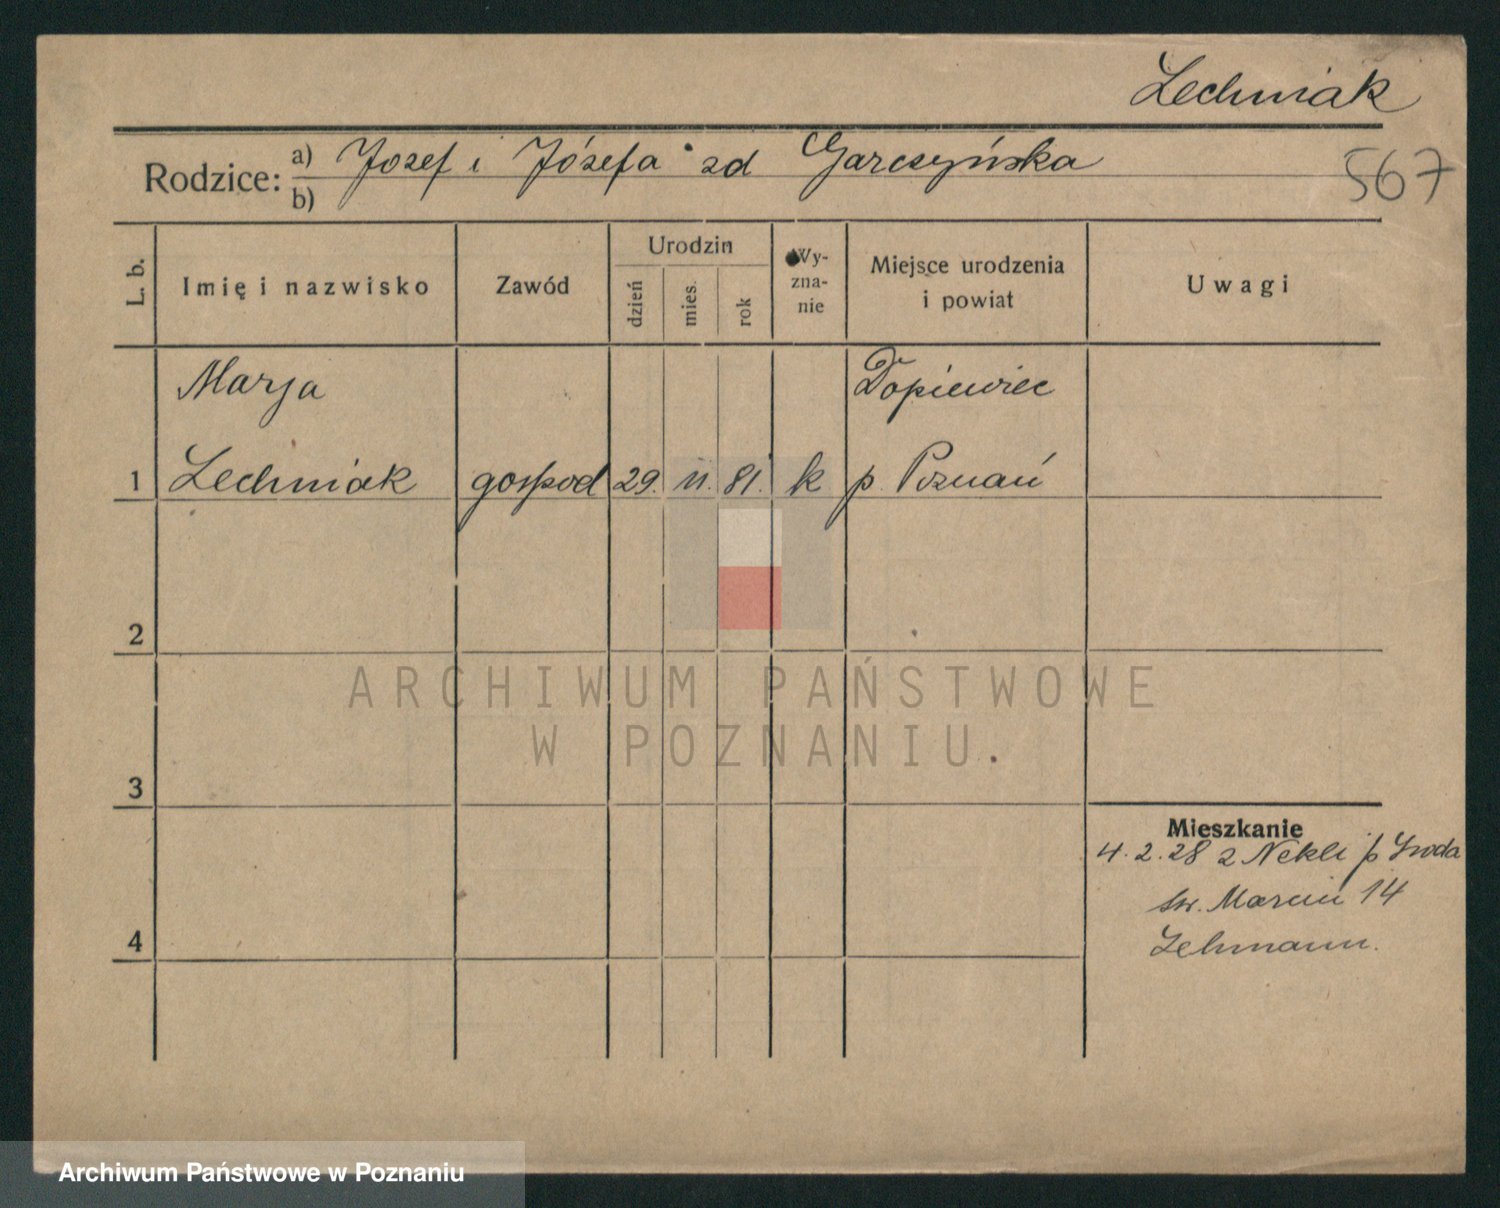 Lechniak
Rodzice: a) Jozef i Józefa zd Garczyńska
b)
567
L. b. Imię i nazwisko Zawód Urodzin dzień mies. rok Wy-zna-nie Miejsce urodzenia i powiat Uwagi
Marja Dopiewiec
1 Lechniak gospod 29. 11. 81. k p. Poznań
2
ARCHIWUM PAŃSTWOWE
W POZNANIU.
3
Mieszkanie
4. 2. 28 z Nekli p Sroda
św. Marcin 14
4 Lehmann.
Archiwum Państwowe w Poznaniu